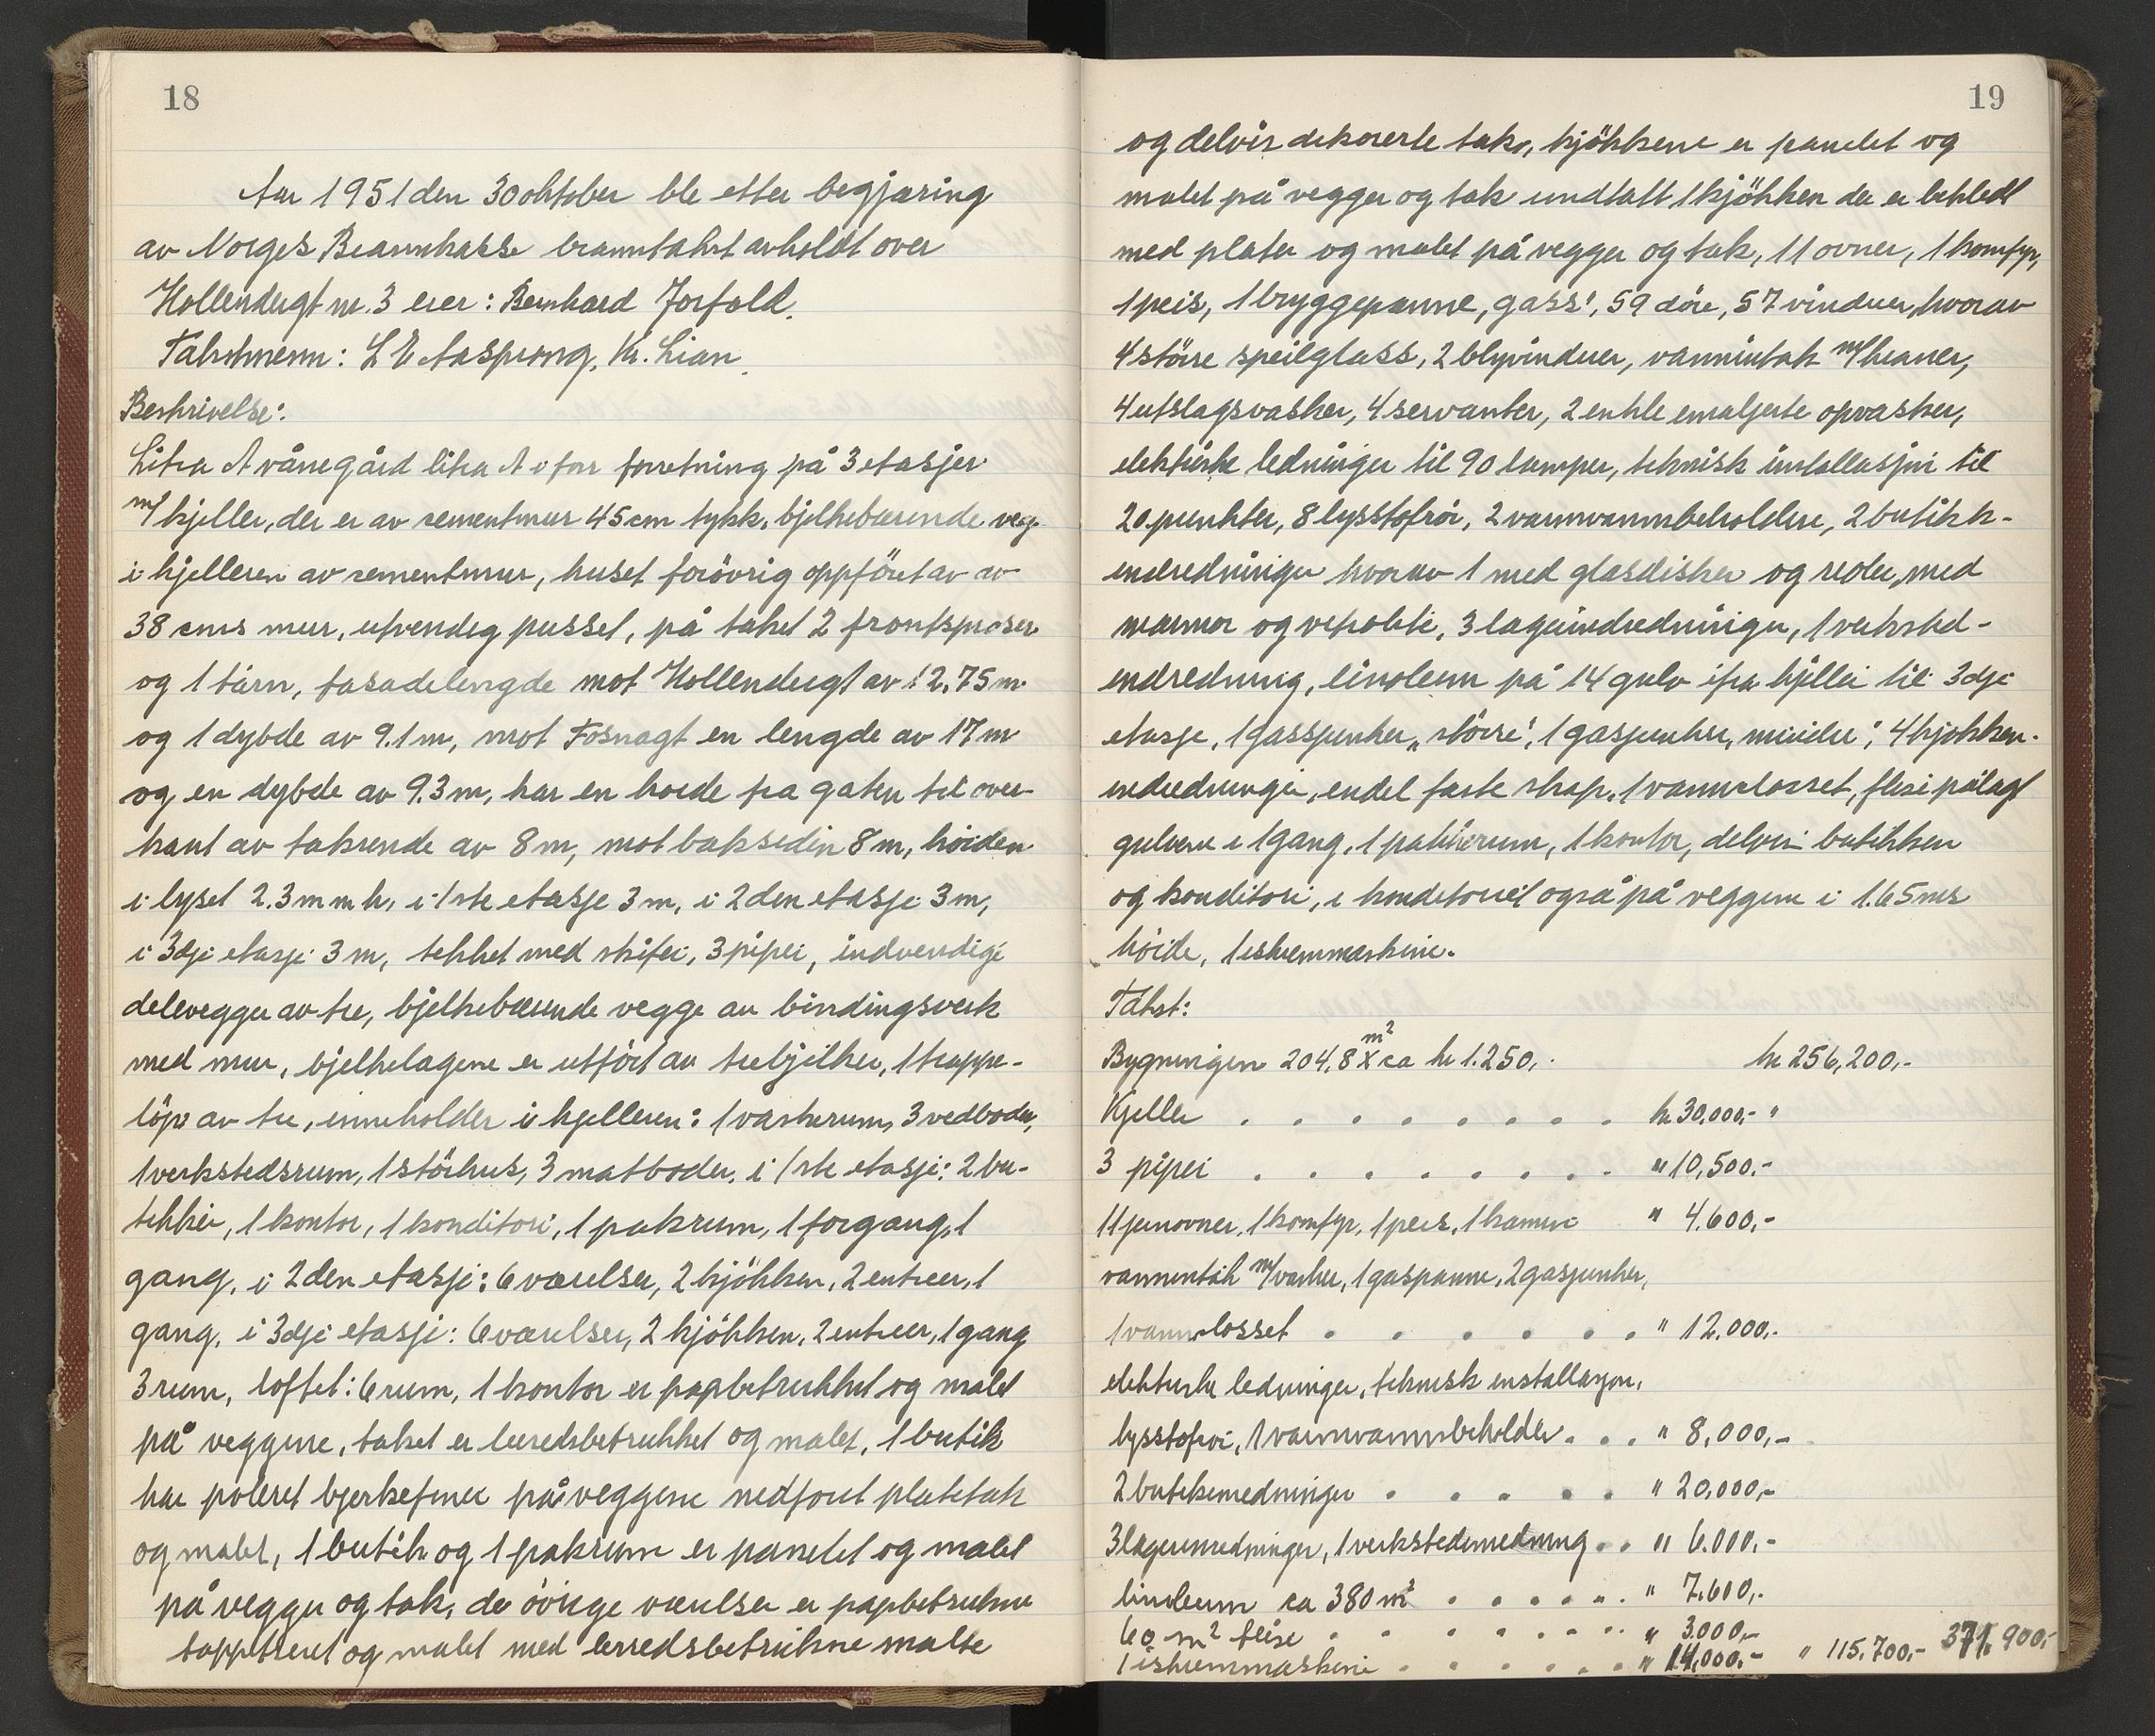 18
Aar 1951 den 30 oktober ble etter begjæring
av Norges Brannkasse branntakst avholdt over
Hollendergt nr. 3 eier: Bernhard Forfold.
Takstmenn: L E Aasprong, Kr. Lian.
Beskrivelse:
Litra A vånegård litra A i forr forretning på 3 etasjer
m/ kjeller, der er av sementmur 45 cm tykk, bjelkebærende vegg
i kjelleren av sementmur, huset forövrig oppföret av av
38 cms mur, utvendig pusset, på taket 2 frontspiser
og 1 tårn, fasadelengde mot Hollendergt av 12,75 m
og 1 dybde av 9.1 m, mot Fosnagt en lengde av 17 m
og en dybde av 9.3 m, har en hoide fra gaten til over-
kant av takrende av 8 m, mot baksiden 8 m, höiden
i lyset 2.3 m m h, i 1ste etasje 3 m, i 2den etasje 3 m,
i 3dje etasje 3 m, tekket med skifer, 3 piper, indvendige
delevegger av tre, bjelkebærende vegge av bindingsverk
med mur, bjelkelagene er utfört av trebjelker, 1 trappe-
löp av tre, inneholder i kjelleren: 1 vaskerum, 3 vedboder,
1 verkstedsrum, 1 störhus, 3 matboder. i 1ste etasje: 2 bu-
tikker, 1 kontor, 1 konditori, 1 pakrum, 1 forgang, 1
gang, i 2den etasje: 6 værelser, 2 kjökken, 2 entreer, 1
gang, i 3dje etasje: 6 værelser, 2 kjökken, 2 entreer, 1 gang
3 rum, loftet: 6 rum, 1 kontor er papbetrukket og malet
på veggene, taket er lerredsbetrukket og malet, 1 butik
har poleret bjerkefiner på veggene nedforet platetak
og malet, 1 butik og 1 pakrum er panelet og malet
på vegger og tak, de övrige værelser er papbetrukne
tappetseret og malet med lerredsbetrukne malte
19
og delvis dekorerte tak, kjökkene er panelet og
malet på vegger og tak undtatt 1 kjökken der er bekledt
med plater og malet på vegger og tak, 11 ovner, 1 komfyr,
1 peis, 1 bryggepanne, "gass", 59 döre, 57 vinduer, hvorav
4 störe speilglass, 2 blyvinduer, vanninntak m/ kraner,
4 utslagsvasker, 4 servanter, 2 enkle emaljerte opvasker,
elektriske ledninger til 90 lamper, teknisk installasjon til
20 punkter, 8 lysstofrör, 2 varmvannbeholdere, 2 butikk-
endredninger hvorav 1 med glasdisker og reoler, med
marmor og, 3 lagerindredninger, 1 verksted-
endredning, linoleum på 14 gulv ifra kjeller til 3dje
etasje, 1 gassjunker "störe", 1 gasjunker "mindre", 4 kjökken-
indredninger, endel faste skap, 1 vannclosset, fliser pålagt
gulvene i 1 gang, 1 pakkerum, 1 kontor, delvis butikken
og konditori, i konditoriet også på veggene i 1.65 ms
höide, 1 iskremmaskine.
Takst:
Bygningen 204,8 m² x ca kr 1.250,- kr 256,200,-
Kjeller . . . . . . . . . kr 30.000,- "
3 piper . . . . . . . . . " 10,500.-
11 jernovner, 1 komfyr, 1 peis, 1 kamin " 4.600,-
vanninntak m/ vasker, 1 gaspanne, 2 gasjunker,
1 vannclosset . . . . . . . " 12.000,-
elektriske ledninger, teknisk installasjon,
lysstofrör, 1 varmvannbeholder . . . " 8,000,-
2 butikinnredninger . . . . . " 20,000,-
3 lagerinnredninger, 1 verkstedinnredning . . " 6.000,-
linoleum ca 380 m² . . . . . . " 7.600,-
60 m² flise . . . . . . . . " 3.000,-
1 iskremmaskine . . . . . . " 14,000.- " 115.700,- 371.900,-